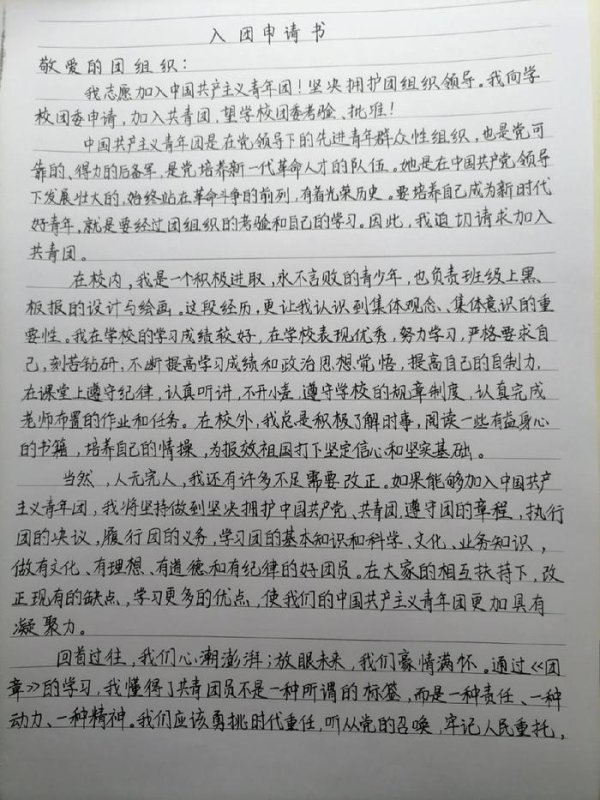 入团申请书
敬爱的团组织：
我志愿加入中国共产主义青年团！坚决拥护团组织领导。我向学
校团委申请，加入共青团，望学校团委考验、批准！
中国共产主义青年团是在党领导下的先进青年群众性组织，也是党可
靠的、得力的后备军，是党培养新一代革命人才的队伍。她是在中国共产党领导
下发展壮大的，始终站在革命斗争的前列，有着光荣历史。要培养自己成为新时代
好青年，就是要经过团组织的考验和自己的学习。因此，我迫切请求加入
共青团。
在校内，我是一个积极进取，永不言败的青少年，也负责班级上黑
板报的设计与绘画。这段经历，更让我认识到集体观念、集体意识的重
要性。我在学校的学习成绩较好，在学校表现优秀，努力学习，严格要求自
己，刻苦钻研，不断提高学习成绩和政治思想觉悟，提高自己的自制力，
在课堂上遵守纪律，认真听讲，不开小差，遵守学校的规章制度，认真完成
老师布置的作业和任务。在校外，我总是积极了解时事，阅读一些有益身心
的书籍，培养自己的情操，为报效祖国打下坚定信心和坚实基础。
当然，人无完人，我还有许多不足需要改正。如果能够加入中国共产
主义青年团，我将坚持做到坚决拥护中国共产党、共青团，遵守团的章程，执行
团的决议，履行团的义务，学习团的基本知识和科学、文化、业务知识，
做有文化、有理想、有道德和有纪律的好团员。在大家的相互扶持下，改
正现有的缺点，学习更多的优点，使我们的中国共产主义青年团更加具有
凝聚力。
回首过往，我们心潮澎湃；放眼未来，我们豪情满怀。通过《团
章》的学习，我懂得了共青团员不是一种所谓的标签，而是一种责任、一种
动力、一种精神。我们应该勇挑时代重任，听从党的召唤，牢记人民重托，